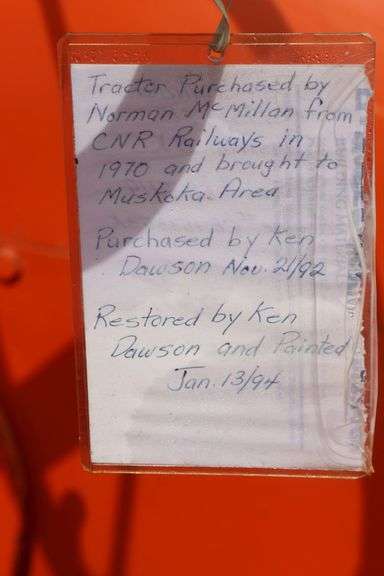 Tractor Purchased by
Norman McMillan from
CNR Railways in
1970 and brought to
Muskoka Area
Purchased by Ken
Dawson Nov. 21/92
Restored by Ken
Dawson and Painted
Jan. 13/94